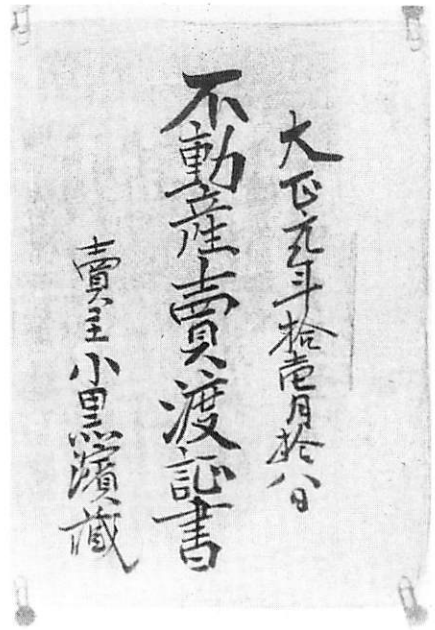 大正元年拾壱月拾八日
不動産賣渡証書
賣主小黒濱蔵